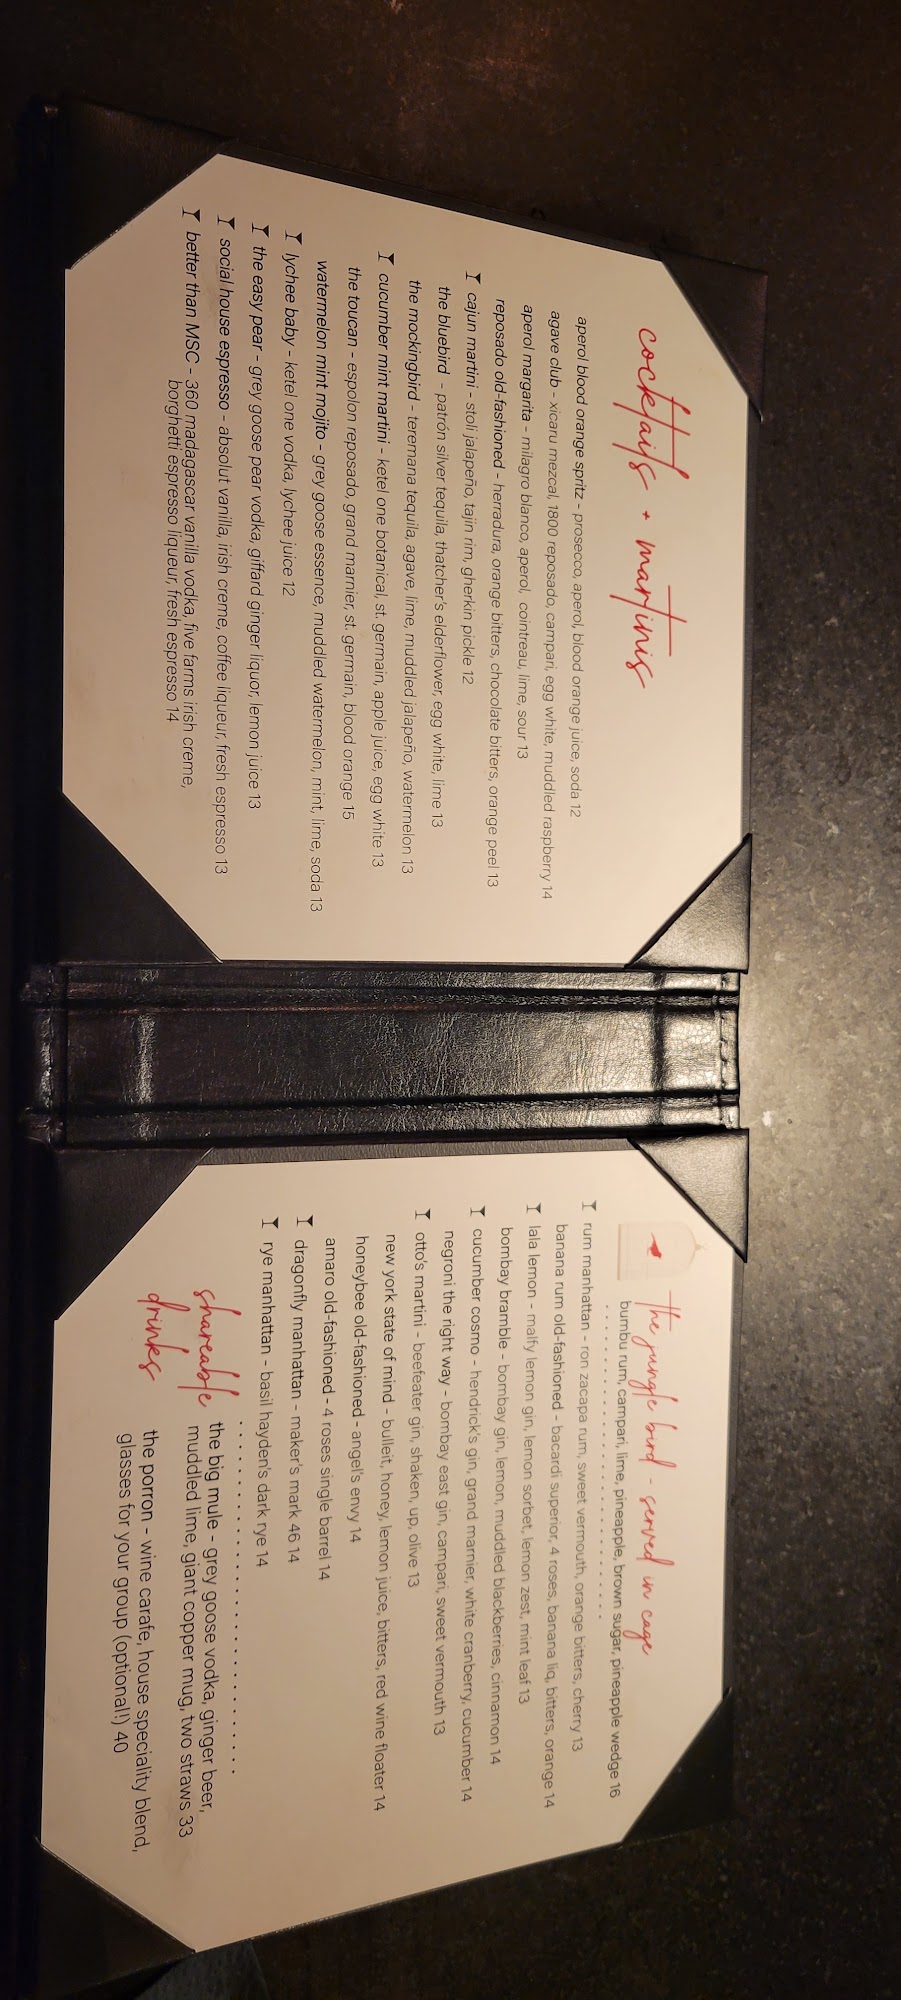 cocktails + martinis
aperol blood orange spritz - prosecco, aperol, blood orange juice, soda 12
agave club - xicaru mezcal, 1800 reposado, campari, egg white, muddled raspberry 14
aperol margarita - milagro blanco, aperol, cointreau, lime, sour 13
reposado old-fashioned - herradura, orange bitters, chocolate bitters, orange peel 13
cajun martini - stoli jalapeño, tajin rim, gherkin pickle 12
the bluebird - patrón silver tequila, thatcher's elderflower, egg white, lime 13
the mockingbird - teremana tequila, agave, lime, muddled jalapeño, watermelon 13
cucumber mint martini - ketel one botanical, st. germain, apple juice, egg white 13
the toucan - espolon reposado, grand marnier, st. germain, blood orange 15
watermelon mint mojito - grey goose essence, muddled watermelon, mint, lime, soda 13
lychee baby - ketel one vodka, lychee juice 12
the easy pear - grey goose pear vodka, giffard ginger liquor, lemon juice 13
social house espresso - absolut vanilla, irish creme, coffee liqueur, fresh espresso 13
better than MSC - 360 madagascar vanilla vodka, five farms irish creme,
borghetti espresso liqueur, fresh espresso 14
the jungle bird - served in cage
bumbu rum, campari, lime, pineapple, brown sugar, pineapple wedge 16
rum manhattan - ron zacapa rum, sweet vermouth, orange bitters, cherry 13
banana rum old-fashioned - bacardi superior, 4 roses, banana liq, bitters, orange 14
lala lemon - malfy lemon gin, lemon sorbet, lemon zest, mint leaf 13
bombay bramble - bombay gin, lemon, muddled blackberries, cinnamon 14
cucumber cosmo - hendrick's gin, grand marnier, white cranberry, cucumber 14
negroni the right way - bombay east gin, campari, sweet vermouth 13
otto's martini - beefeater gin, shaken, up, olive 13
new york state of mind - bulleit, honey, lemon juice, bitters, red wine floater 14
honeybee old-fashioned - angel's envy 14
amaro old-fashioned - 4 roses single barrel 14
dragonfly manhattan - maker's mark 46 14
rye manhattan - basil hayden's dark rye 14
shareable
drinks
the big mule - grey goose vodka, ginger beer,
muddled lime, giant copper mug, two straws 33
the porron - wine carafe, house speciality blend,
glasses for your group (optional!) 40